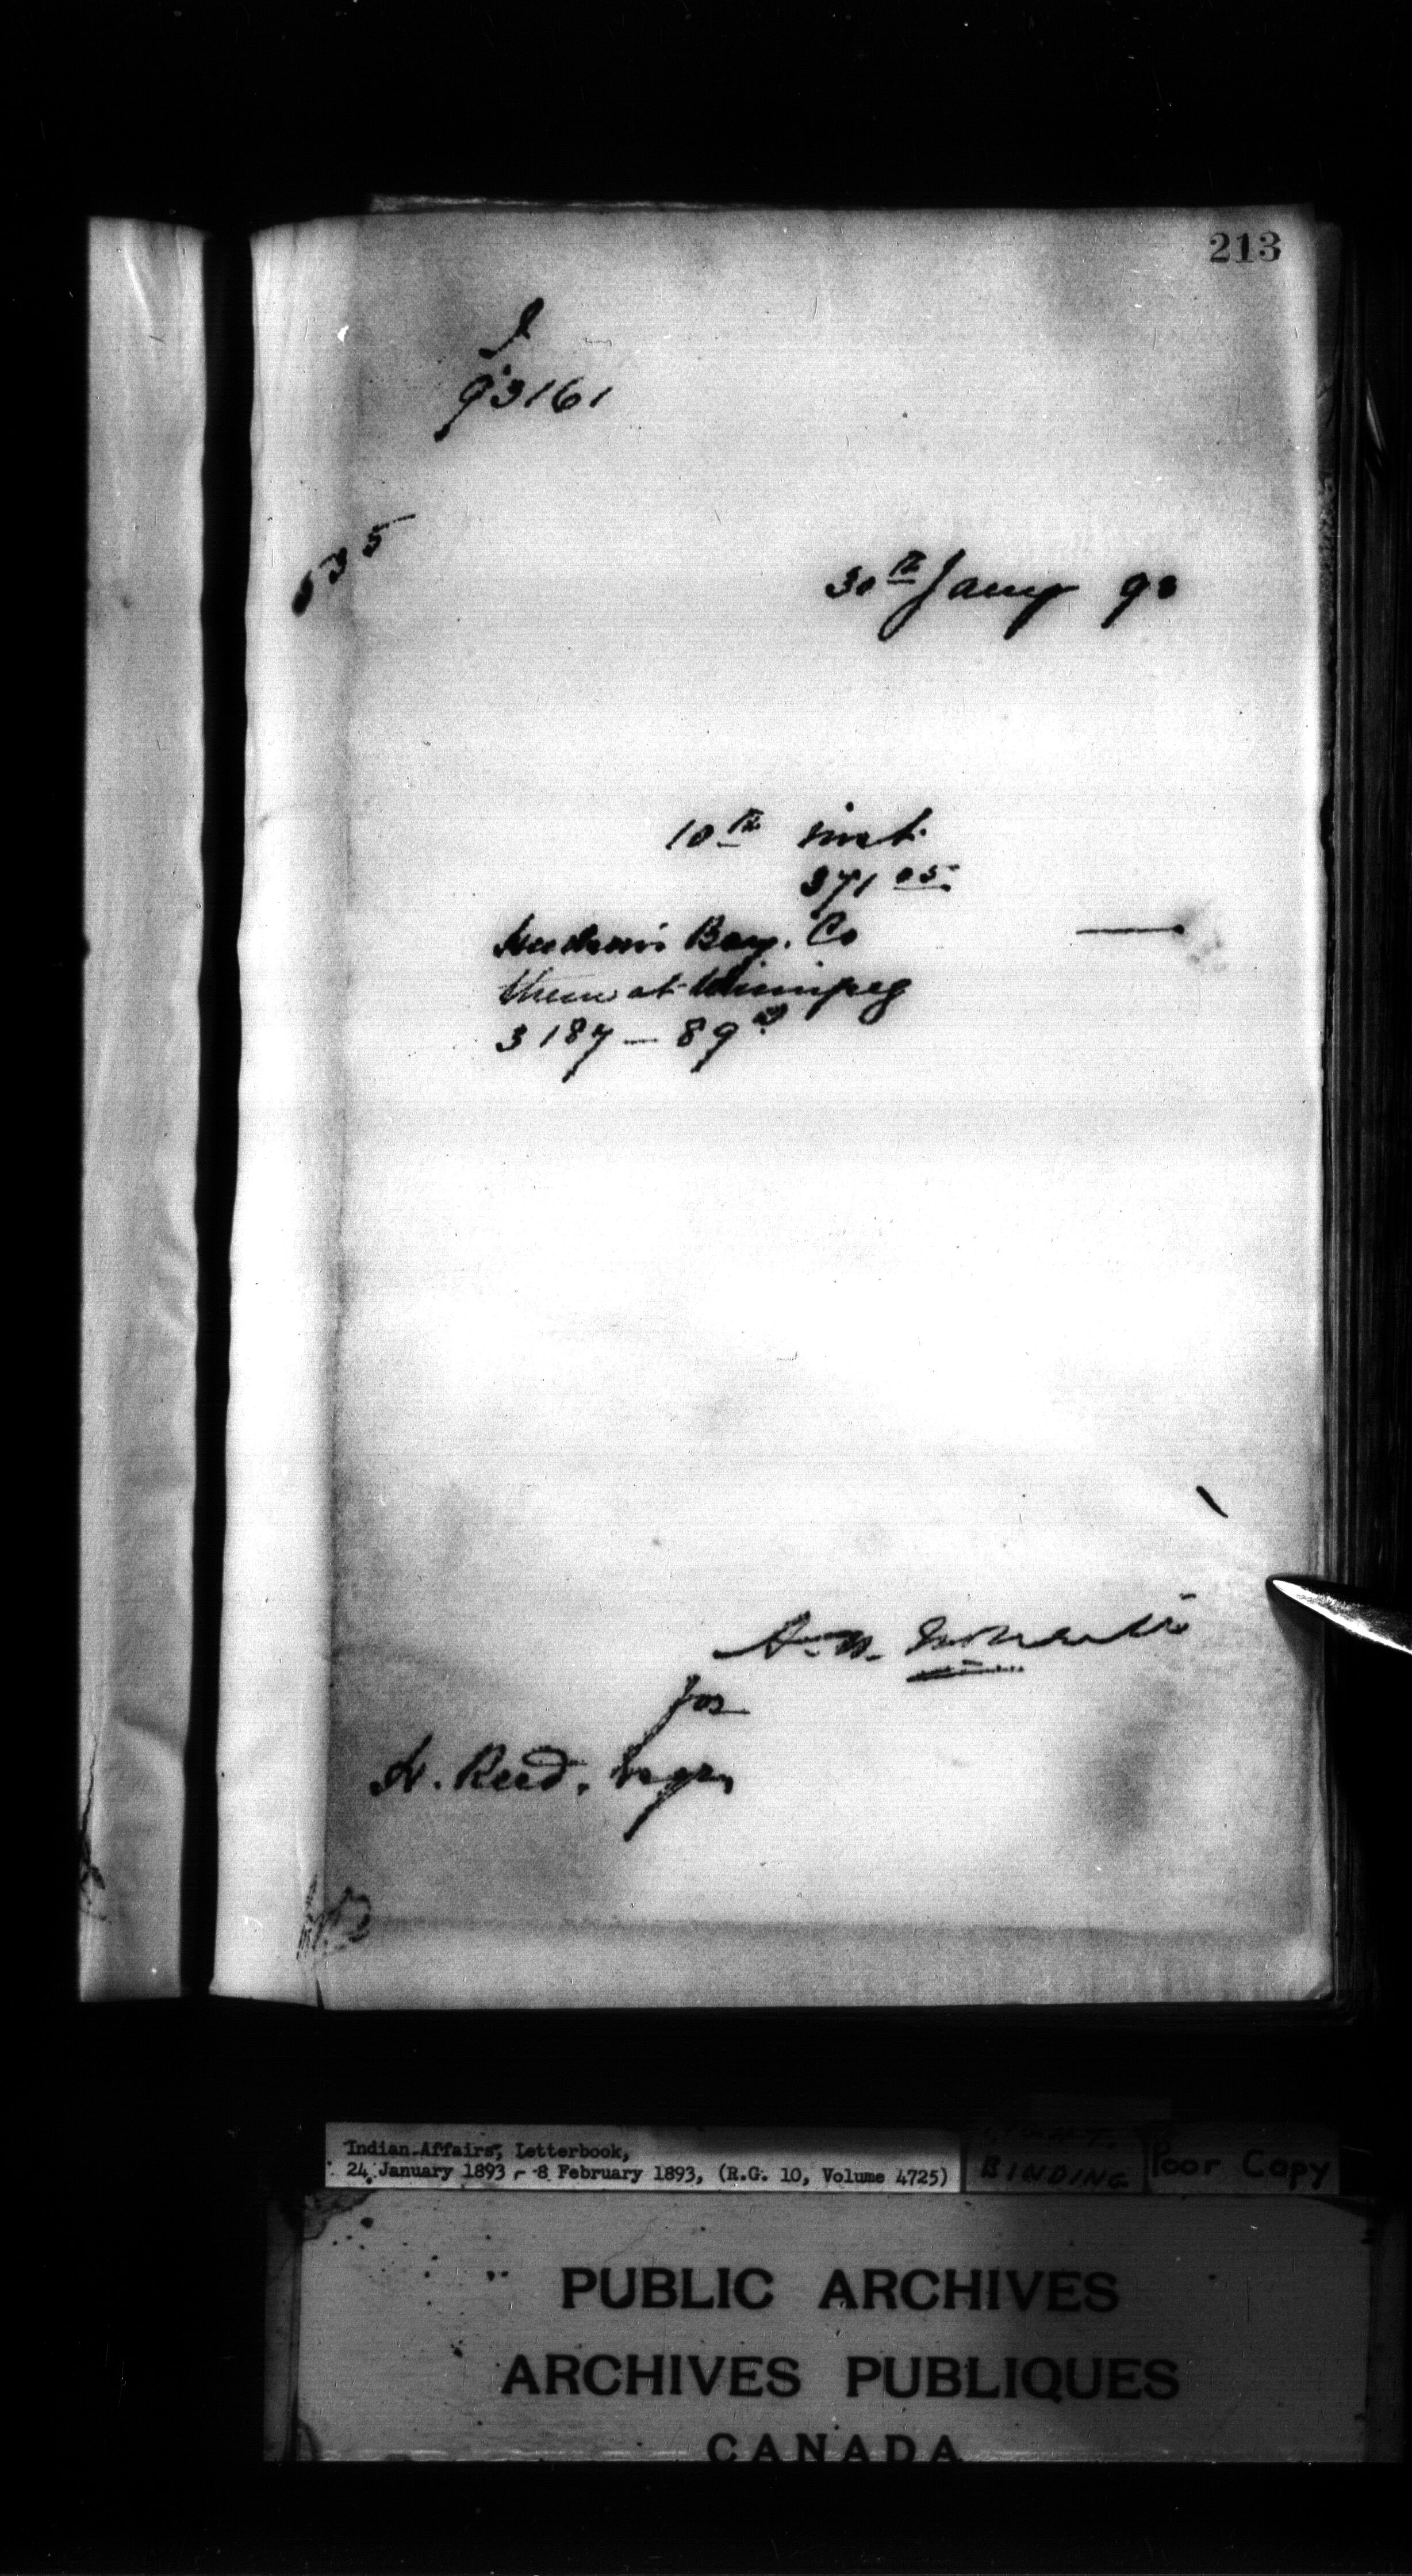 213
93161
535
30th Jany 93
10th inst.
371 05
Hudson's Bay. Co
them at Winnipeg
3187 — 89
for
H. Reed, Esqr,
Indian Affairs, Letterbook,
24 January 1893 - 8 February 1893, (R.G. 10, Volume 4725)
BINDING
Poor Copy
PUBLIC ARCHIVES
ARCHIVES PUBLIQUES
CANADA